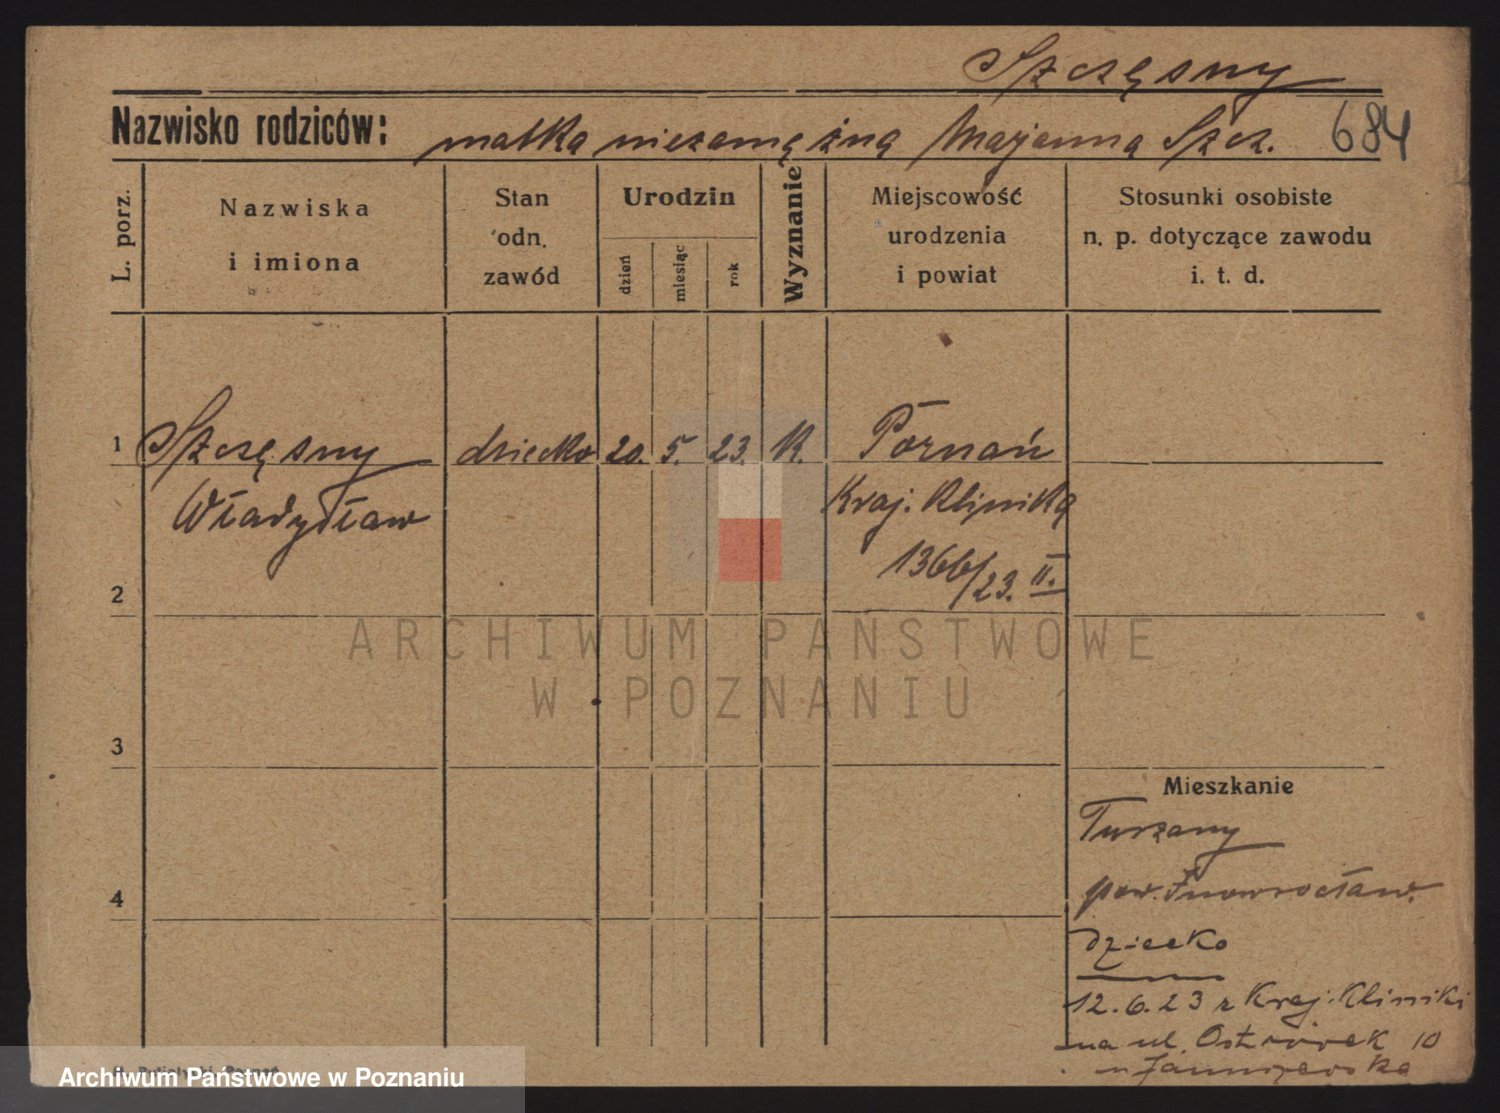 Szczęsny
Nazwisko rodziców: matka niezamężna Marjanna Szcz. 684
L. porz.
Nazwiska
i imiona
Stan
odn.
zawód
Urodzin
dzień
miesiąc
rok
Wyznanie
Miejscowość
urodzenia
i powiat
Stosunki osobiste
n. p. dotyczące zawodu
i. t. d.
1 Szczęsny dziecko 20. 5. 23. K. Poznań
Władysław Kraj. Klinika
1366/23. II.
2
ARCHIWUM PAŃSTWOWE
W POZNANIU
3
Mieszkanie
Turzany
4
pow. Inowrocław.
dziecko
12.6.23 z Kraj. Kliniki
na ul. Ostrówek 10
u
Poznań
Archiwum Państwowe w Poznaniu